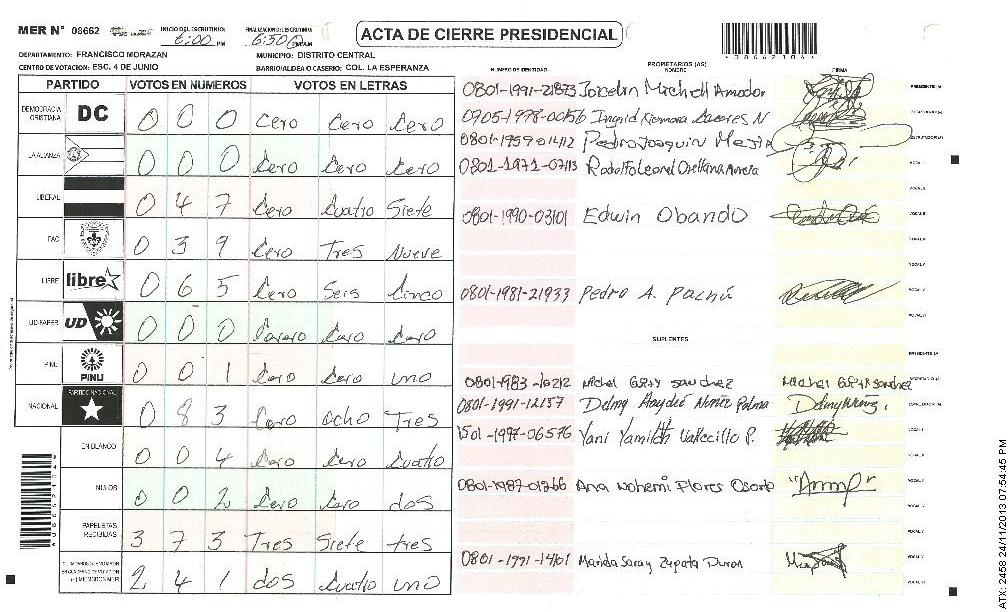 MER N° 08662 INICIO DEL ESCRUTINIO: 6:00 PM FINALIZACION ESCRUTINIO: 6:50 PM ACTA DE CIERRE PRESIDENCIAL
DEPARTAMENTO: FRANCISCO MORAZAN MUNICIPIO: DISTRITO CENTRAL
CENTRO DE VOTACION: ESC. 4 DE JUNIO BARRIO/ALDEA O CASERIO: COL. LA ESPERANZA
PARTIDO VOTOS EN NUMEROS VOTOS EN LETRAS
DEMOCRACIA CRISTIANA DC 0 0 0 Cero Cero Cero
LA ALIANZA 0 0 0 Cero Cero Cero
LIBERAL 0 4 7 Cero Cuatro Siete
PAC 0 3 9 Cero Tres Nueve
LIBRE libre 0 6 5 Cero Seis Cinco
UD-FAPER UD 0 0 0 Cero Cero
PINU PINU 0 0 1 Cero Cero uno
NACIONAL PARTIDO NACIONAL 0 8 3 Cero ocho Tres
EN BLANCO 0 0 4 Cero Cero Cuatro
NULOS 0 0 2 Cero Cero dos
PAPELETAS RECIBIDAS 3 7 3 Tres Siete tres
2 4 1 dos Cuatro uno
NUMERO DE IDENTIDAD PROPIETARIOS (AS) NOMBRE FIRMA
0801-1991-21873 Joicelin Michell Amador PRESIDENTE (A)
0705-1978-00156 Ingrid N SECRETARIO (A)
0801-1959-01412 Pedro Joaquin Mejia ESCRUTADOR (A)
0801-1971-07113 Rodolfo Leonel Orellana VOCAL I
VOCAL II
0801-1990-03101 Edwin Obando VOCAL III
VOCAL IV
VOCAL V
0801-1981-21933 Pedro A. VOCAL VI
SUPLENTES
PRESIDENTE (A)
0801-1983-10212 Michel Sanchez SECRETARIO (A)
0801-1991-12157 Delmy Haydeé Nuñez Palma ESCRUTADOR (A)
1501-1997-06576 Yani Yamileth Vallecillo P. VOCAL I
VOCAL II
0801-1987-01266 Ana Nohemi Flores Osorto VOCAL III
VOCAL IV
VOCAL V
0801-1991-14161 Marida Saray Zapata Duron VOCAL VI
ATX: 2458 24/11/2013 07:54:45 PM